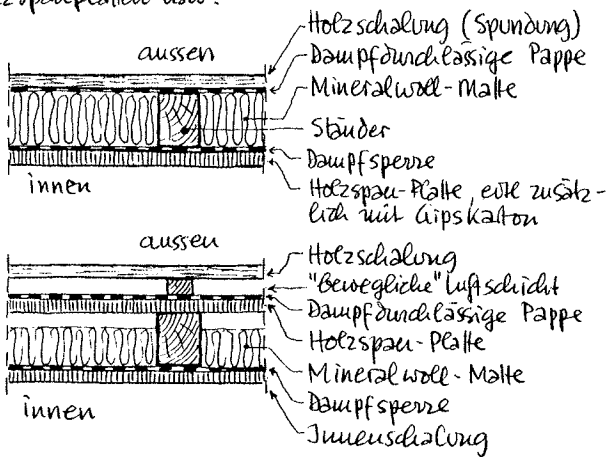 aussen
Holzschalung (Spundung)
Dampfdurchlässige Pappe
Mineralwoll-Matte
Ständer
Dampfsperre
Holzspan-Platte, evtl zusätz-
lich mit Gipskarton
innen
aussen
Holzschalung
"Bewegliche" Luftschicht
Dampfdurchlässige Pappe
Holzspan-Platte
Mineralwoll-Matte
Dampfsperre
Innenschalung
innen